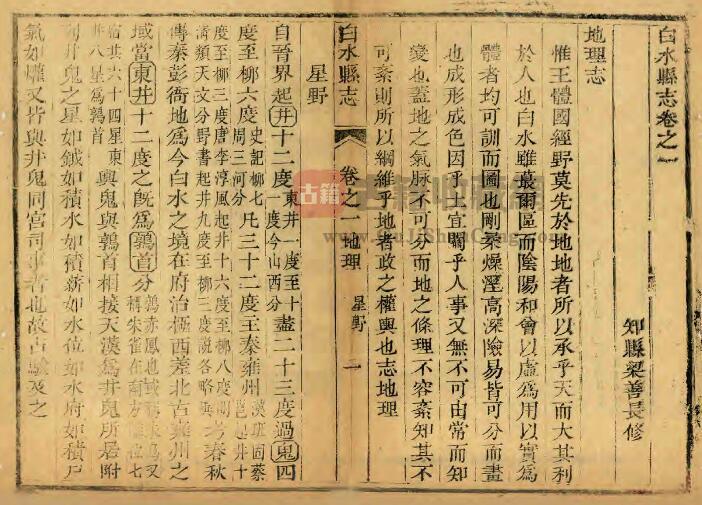 白水縣志卷之一
知縣梁善長修
地理志
惟王體國經野莫先於地地者所以承乎天而大其利
於人也白水雖蕞爾區而陰陽和會以虛爲用以實爲
體者均可訓而圖也剛柔燥溼高深險易皆可分而畫
也成形成色因乎土宜關乎人事又無不可由常而知
變也蓋地之氣脉不可分而地之條理不容紊知其不
可紊則所以綱維乎地者政之權輿也志地理
白水縣志
卷之一 地理
星野
一
星野
自晉界起井十二度東井一度至十一度今山西分盡二十三度過鬼四
度至柳六度史記柳七周三河分凡三十二度王秦雍州漢班固蔡邕起井十
度至柳三度唐李淳風起井十六度至柳八度
清類天文分野書起井九度至柳三度說各略春秋
傳秦彭衙地爲今白水之境在府治極西差北古雍州之
域當東井十二度之旣爲鶉首分
宿共六十四星東井八星爲鶉首輿鬼與鶉首相接天漢爲井鬼所居附
井鬼之星如鉞如積水如積薪如水位如水府如積尸
氣如爟又皆與井鬼同宮司事者也故占驗及之
古籍
www.GuJiShuCang.com